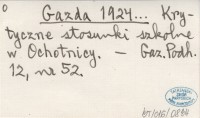 Gazda 1924... Kry-
tyczne stosunki szkolne
w Ochotnicy. — Gaz. Podh.
12, nr 52.